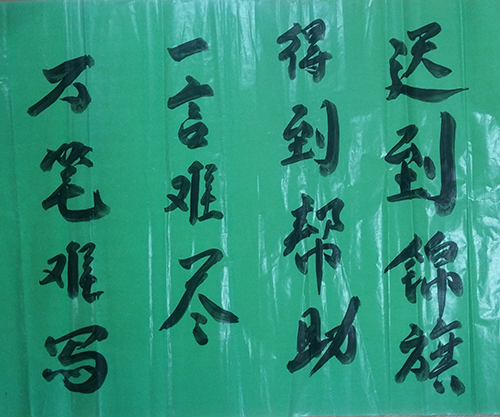 迟到锦旗
得到帮助
一言难尽
万笔难写